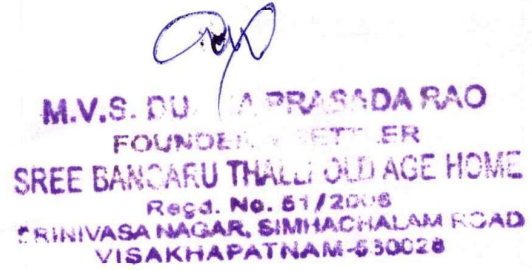 M.V.S. DU A PRASADA RAO
FOUNDER ER
SREE BANGARU THALLI OLD AGE HOME
Regd. No. 51/2006
SRINIVASA NAGAR, SIMHACHALAM ROAD
VISAKHAPATNAM-530028